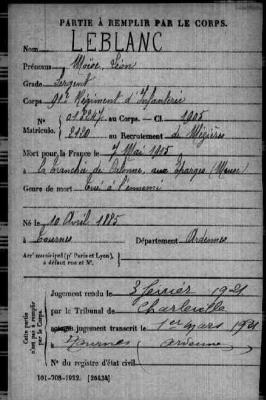 PARTIE À REMPLIR PAR LE CORPS.
Nom LEBLANC
Prénoms Moïse, Léon
Grade Sergent
Corps 91e Régiment d'Infanterie
N° 013247 au Corps. — Cl. 1905
Matricule. 2120 au Recrutement de Mézières
Mort pour la France le 7 Mai 1915
à la tranchée de Calonne, aux Eparges (Meuse)
Genre de mort Tué à l'ennemi
Né le 10 Avril 1885
à Tournes Département Ardennes
Arr' municipal (p' Paris et Lyon),
à défaut rue et N°.
Cette partie n'est pas à remplir par le Corps.
Jugement rendu le 3 février 1921
par le Tribunal de Charleville
jugement transcrit le 1er mars 1921
à Tournes (Ardennes)
N° du registre d'état civil
101-708-1922. [26434]